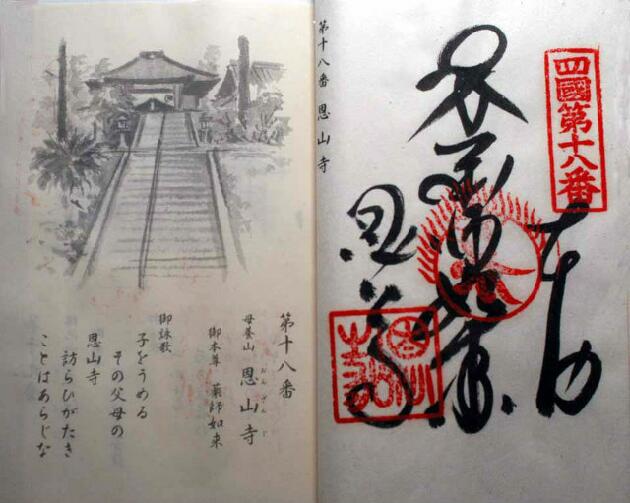 第十八番 恩山寺
四國第十八番
奉納
恩山寺
第十八番
母養山 恩山寺
おんざんじ
御本尊 薬師如来
御詠歌
子をうめる
その父母の
恩山寺
訪らひがたき
ことはあらじな